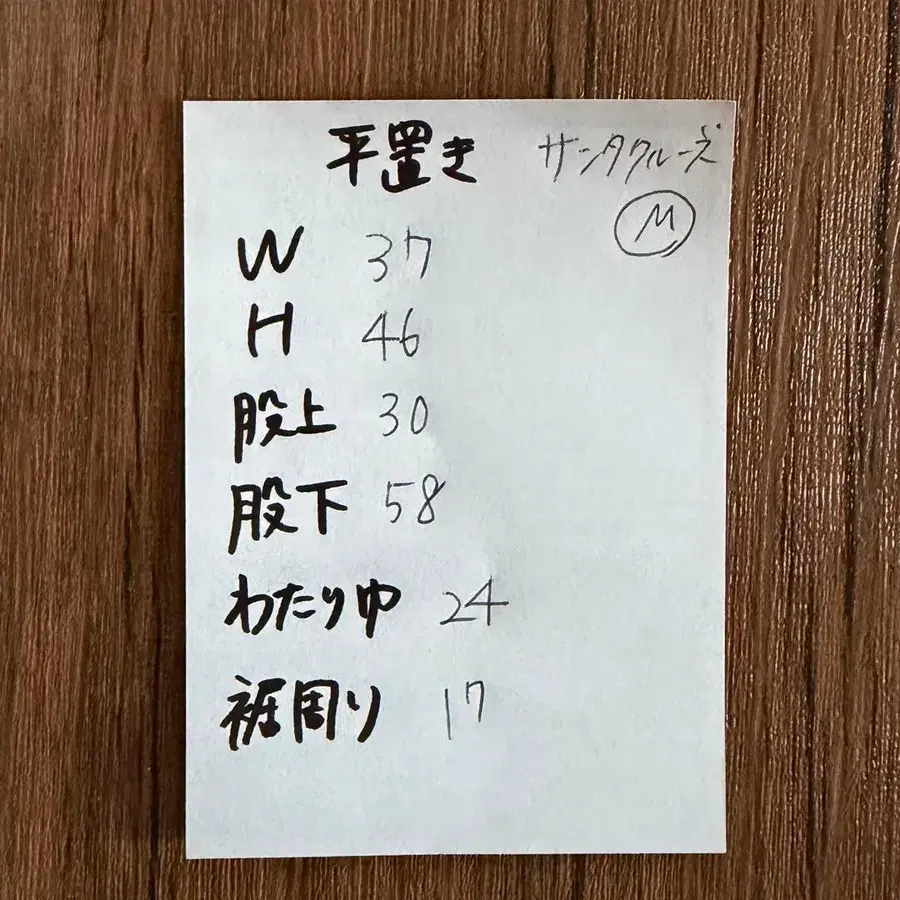 平置き サンタクルーズ
M
W 37
H 46
股上 30
股下 58
わたりゆ 24
裾周り 17